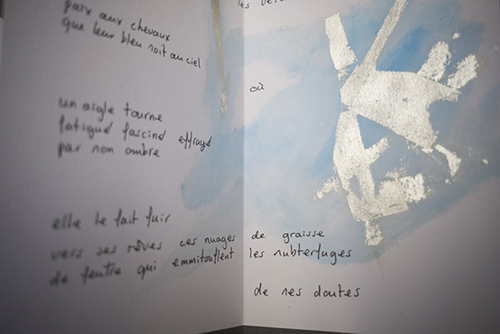 paix aux chevaux
que leur bleu soit au ciel
les
où
un aigle tourne
fatigué fasciné effrayé
par son ombre
elle le fait fuir
vers ses rêves ces nuages de graisse
de feutre qui emmitouflent les subterfuges
de ses doutes